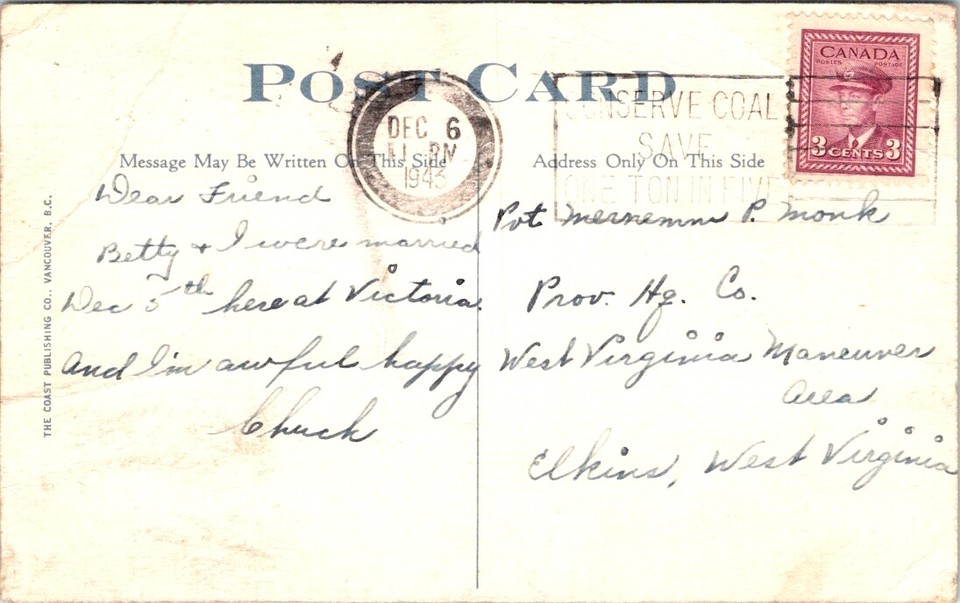 POST CARD
CANADA
POSTES POSTAGE
3 CENTS 3
DEC 6
PM
1943
CONSERVE COAL
SAVE
ONE TON IN FIVE
Message May Be Written On This Side
Address Only On This Side
THE COAST PUBLISHING CO., VANCOUVER, B.C.
Dear Friend
Betty & I were married
Dec 5th here at Victoria.
And I'm awful happy
Chuck
Pvt P. Monk
Prov. Hq. Co.
West Virginia Maneuver
Area
Elkins, West Virginia